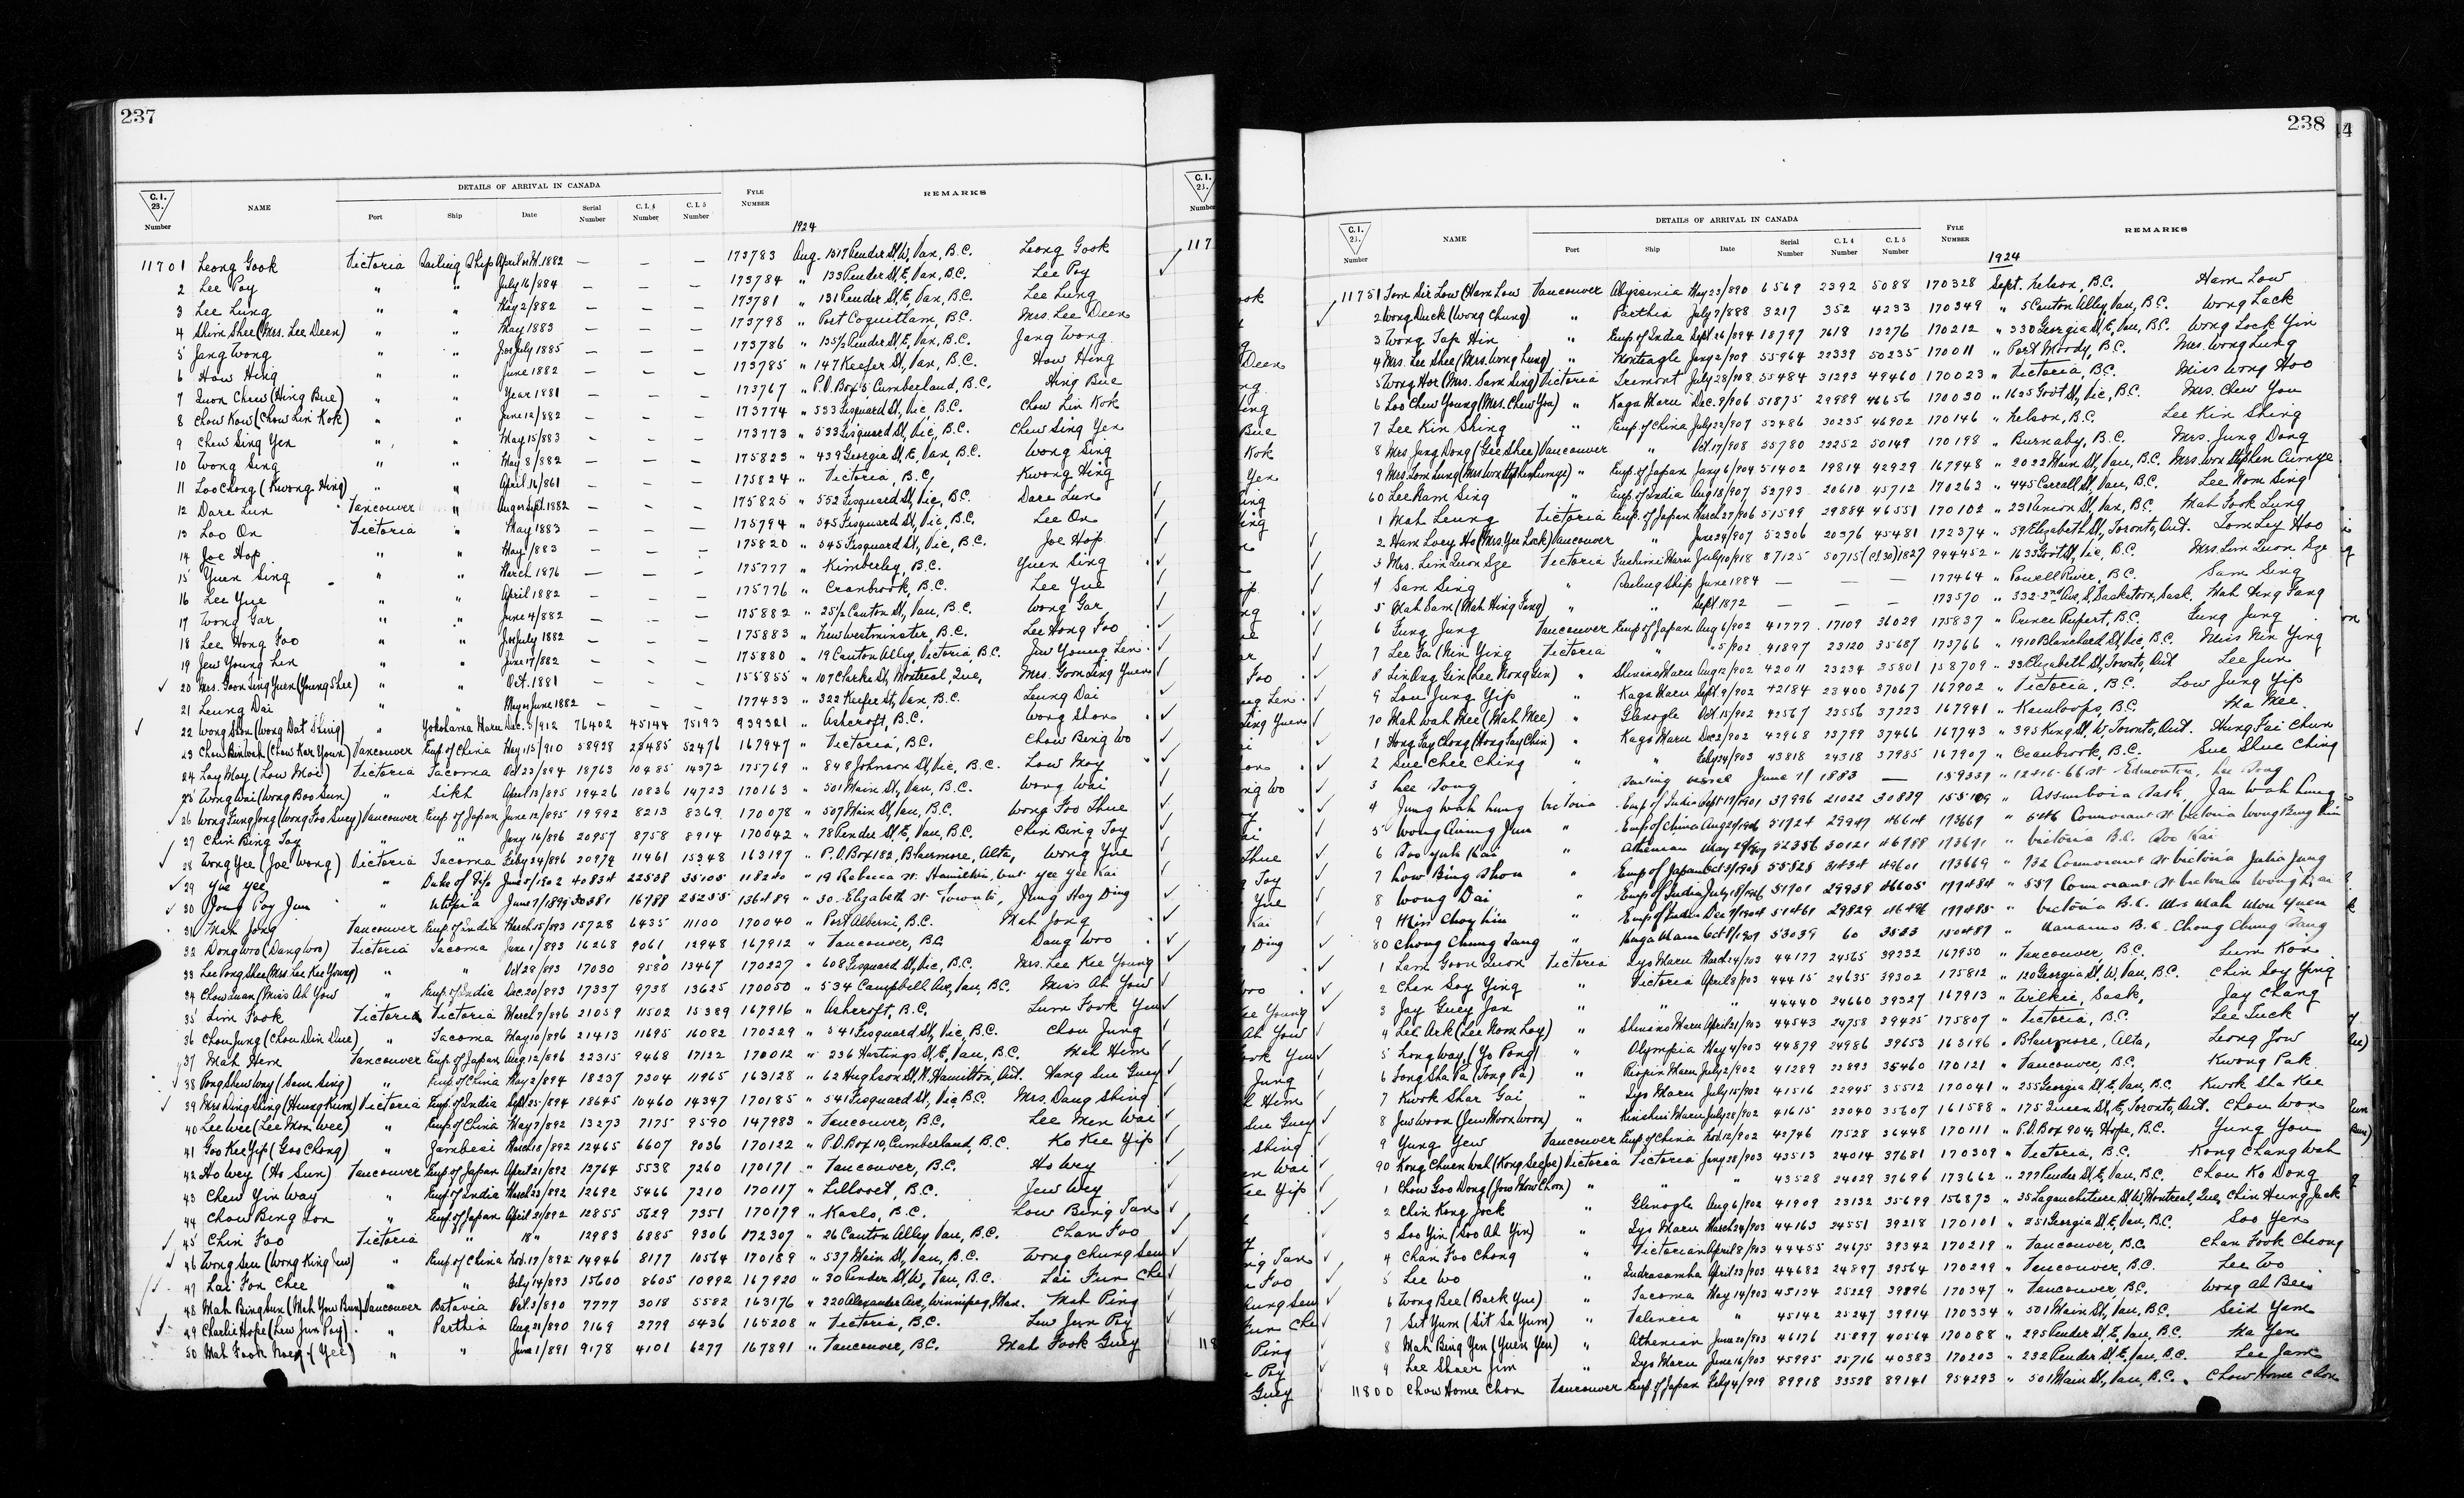 237
DETAILS OF ARRIVAL IN CANADA
C.I. 23. Number NAME Port Ship Date Serial Number C.I.4 Number C.I.5 Number FYLE NUMBER REMARKS
1924
11701 Leong Gook Victoria Sailing Ship April 1882 — — — 173783 Aug. 1517 Pender St, W, Van, B.C. Leong Gook
2 Lee Poy " " July 16/884 — — — 173784 " 133 Pender St, E, Van, B.C. Lee Poy
3 Lee Lung " " May 2/882 — — — 173781 " 131 Pender St, E, Van, B.C. Lee Lung
4 Shim Shee (Mrs. Lee Deen) " " May 1883 — — — 173798 " Port Coquitlam, B.C. Mrs. Lee Deen
5 Jang Wong " " July 1885 — — — 173786 " 135½ Pender St, E, Van, B.C. Jang Wong
6 How Hing " " June 1882 — — — 173785 " 147 Keefer St, Van, B.C. How Hing
7 Quon Chew (Hing Bue) " " Year 1881 — — — 173767 " P.O. Box 5 Cumberland, B.C. Hing Bue
8 Chow Kow (Chow Lin Kok) " " June 12/882 — — — 173774 " 533 Fisguard St, Vic, B.C. Chow Lin Kok
9 Chew Sing Yen " " May 15/883 — — — 173773 " 533 Fisguard St, Vic, B.C. Chew Sing Yen
10 Wong Sing " " May 8/882 — — — 175823 " 439 Georgia St, E, Van, B.C. Wong Sing
11 Loo Chong (Kwong Hing) " " April 16/861 — — — 175824 " Victoria, B.C. Kwong Hing
12 Dare Lun Vancouver " Aug or Sept. 1882 — — — 175825 " 552 Fisguard St, Vic, B.C. Dare Lun
13 Loo On Victoria " May 1883 — — — 175794 " 545 Fisguard St, Vic, B.C. Lee On
14 Joe Hop " " May 1883 — — — 175820 " 545 Fisguard St, Vic, B.C. Joe Hop
15 Yuen Sing " " March 1876 — — — 175777 " Kimberley, B.C. Yuen Sing
16 Lee Yue " " April 1882 — — — 175776 " Cranbrook, B.C. Lee Yue
17 Wong Gar " " June 4/882 — — — 175882 " 25½ Canton St, Van, B.C. Wong Gar
18 Lee Hong Foo " " July 1882 — — — 175883 " New Westminster, B.C. Lee Hong Foo
19 Jew Young Len " " June 17/882 — — — 175880 " 19 Canton Alley, Victoria, B.C. Jew Young Len
20 Mrs. Goon Ling Yuen (Young Shee) " " Oct. 1881 — — — 155855 " 107 Clarke St, Montreal, Que, Mrs. Goon Ling Yuen
21 Leung Dai " " May or June 1882 — — — 177433 " 322 Keefer St, Van, B.C. Leung Dai
22 Wong Shon (Wong Dat Shing) " Yokohama Maru Dec. 3/912 76402 45144 75193 939321 " Ashcroft, B.C. Wong Shon
23 Chow Bin Woh (Chow Kar Youn) Vancouver Emp. of China May 15/910 58928 28485 52476 167947 " Victoria, B.C. Chow Bing Wo
24 Loy Moy (Low Moi) Victoria Tacoma Oct 23/894 18763 10485 14372 175769 " 848 Johnson St, Vic, B.C. Low Moy
25 Wong Wai (Wong Boo Sun) " Sikh April 13/895 19426 10836 14723 170163 " 501 Main St, Van, B.C. Wong Wai
26 Wong Fung Jong (Wong Foo Suey) Vancouver Emp. of Japan June 12/895 19992 8213 8369 170078 " 507 Main St, Van, B.C. Wong Foo Shue
27 Chin Bing Toy " " Jany 16/896 20957 8758 8914 170042 " 78 Pender St, E, Van, B.C. Chin Bing Toy
28 Wong Yee (Joe Wong) Victoria Tacoma Feby 24/896 20974 11461 15348 163197 " P.O. Box 182, Blairmore, Alta, Wong Yue
29 Yue Yee " Duke of Fife June 5/1902 40834 22538 35105 118240 " 19 Rebecca St. Hamilton, Ont Yee Yee Kai
30 Jong Poy Jun " Utopia June 7/1899 30381 16788 25255 136489 " 30 Elizabeth St Toronto, Jung Hoy Ding
31 Mah Jong Vancouver Emp. of India March 15/893 15728 6435 11100 170040 " Port Alberni, B.C. Mah Jong
32 Dong Woo (Dang Woo) Victoria Tacoma June 1/893 16268 9061 12948 167912 " Vancouver, B.C. Dang Woo
33 Lee Pong Shee (Mrs. Lee Kee Young) " " Oct 28/893 17030 9580 13467 170227 " 608 Fisguard St, Vic, B.C. Mrs. Lee Kee Young
34 Chow Quan (Miss Ah Yow " Emp. of India Dec. 20/893 17337 9738 13625 170050 " 534 Campbell Ave, Van, B.C. Miss Ah Yow
35 Lim Fook Victoria Victoria March 7/896 21059 11502 15389 167916 " Ashcroft, B.C. Lum Fook Yuen
36 Chou Jung (Chou Din Due) " Tacoma May 10/896 21413 11695 16082 170229 " 541 Fisguard St, Vic, B.C. Chou Jung
37 Mah Hem Vancouver Emp. of Japan Aug. 12/896 22315 9468 17122 170012 " 236 Hastings St, E, Van, B.C. Mah Him
38 Pong Shew Way (Sam Sing) " Emp. of China May 2/894 18237 7304 11965 163128 " 62 Hughson St, N. Hamilton, Ont. Hang Sue Guey
39 Mrs Ding Shing (Heung Kum) Victoria Emp. of India Sept 25/894 18645 10460 14347 170185 " 541 Fisguard St, Vic B.C. Mrs. Dang Shing
40 Lee Wee (Lee Mon Wee) " Emp. of China May 7/892 13273 7175 9590 147983 " Vancouver, B.C. Lee Men Wai
41 Goo Kee Yip (Goo Chong) " Zambesi March 18/892 12465 6607 9036 170122 " P.O. Box 10, Cumberland, B.C. Ko Kee Yip
42 Ho Wey (Ho Sun) Vancouver Emp. of Japan April 21/892 12764 5538 7260 170171 " Vancouver, B.C. Ho Wey
43 Chew Yin Way " Emp. of India March 23/892 12692 5466 7210 170117 " Lillooet, B.C. Jew Wey
44 Chow Bing Lon " Emp. of Japan April 21/892 12855 5629 7351 170179 " Kaslo, B.C. Low Bing Tan
45 Chin Foo Victoria " 18 " 12983 6885 9306 172307 " 26 Canton Alley, Van, B.C. Chan Foo
46 Wong Seu (Wong King Sew) " Emp. of China Nov. 17/892 14946 8177 10564 170189 " 537 Main St, Van, B.C. Wong Chung Seu
47 Lai Fon Chee " " Feby 14/893 15600 8605 10992 167920 " 30 Pender St, W, Van, B.C. Lai Fun Che
48 Mah Bing Sun (Mah Yow Bun) Vancouver Batavia Oct. 3/890 7777 3018 5582 163176 " 220 Alexander Ave, Winnipeg, Man. Mah Ping
49 Charlie Hope (Lew Jun Poy) " Parthia Aug 28/890 7169 2779 5436 165208 " Victoria, B.C. Low Jun Poy
50 Mah Fook Noey (Yee) " " June 1/891 9178 4101 6277 167891 " Vancouver, B.C. Mah Fook Guey
238
DETAILS OF ARRIVAL IN CANADA
C.I. 23. Number NAME Port Ship Date Serial Number C.I.4 Number C.I.5 Number FYLE NUMBER REMARKS
1924
11751 Tom Sir Low (Ham Low Vancouver Abyssinia May 23/890 6569 2392 5088 170328 Sept. Nelson, B.C. Ham Low
2 Wong Duck (Wong Chung) " Parthia July 7/888 3217 352 4233 170349 " 5 Canton Alley, Van, B.C. Wong Lack
3 Wong Tap Hin " Emp of India Sept. 26/894 18797 7618 12276 170212 " 330 Georgia St, E, Van, B.C. Wong Lock Yin
4 Mrs. Lee Shee (Mrs. Wong Lung) " Monteagle Jany 2/909 55964 22339 50235 170011 " Port Moody, B.C. Mrs. Wong Lung
5 Wong Hor (Mrs. Sam Sing) Victoria Tremont July 28/908 55484 31293 49460 170023 " Victoria, B.C. Miss Wong Hoo
6 Loo Chew Young (Mrs. Chew You) " Kaga Maru Dec. 9/906 51875 29989 46656 170030 " 1635 Govt St, Vic, B.C. Mrs. Chew You
7 Lee Kin Shing " Emp. of China July 22/907 52486 30235 46902 170146 " Nelson, B.C. Lee Kin Shing
8 Mrs. Jang Dong (Gee Shee) Vancouver " Oct. 17/908 55780 22252 50149 170198 " Burnaby, B.C. Mrs. Jung Dong
9 Mrs. Lom Lung (Mrs Won Stephen Cumye) " Emp. of Japan Jany 6/904 51402 19814 42929 167948 " 2022 Main St, Van, B.C. Mrs. Won Stephen Cumye
60 Lee Nam Sing " Emp. of India Aug 18/907 52793 20610 45712 170263 " 445 Carrall St, Van, B.C. Lee Nom Sing
1 Mah Leung Victoria Emp. of Japan March 27/906 51599 29884 46551 170102 " 231 Union St, Van, B.C. Mah Fook Lung
2 Ham Loey Ho (Mrs. Yee Lock) Vancouver " June 24/907 52306 20376 45481 172374 " 59 Elizabeth St, Toronto, Ont. Tom Ley Hoo
3 Mrs. Lim Quon Sze Victoria Fushimi Maru July 10/918 87125 50715 (C.I.30) 1827 944452 " 1633 Govt St, Vic, B.C. Mrs. Lim Quon Sze
4 Sam Sing " Sailing Ship June 1884 — — — 177464 " Powell River, B.C. Sam Sing
5 Mah Sam (Mah Hing Fang) " " Sept. 1872 — — — 173570 " 332-2nd Ave, S, Saskatoon, Sask. Mah Hing Fang
6 Fung Jung Vancouver Emp. of Japan Aug 6/902 41777 17109 36029 175837 " Prince Rupert, B.C. Fung Jung
7 Lee Fa (Nin Ying Victoria " " 5/902 41897 23120 35687 173766 " 1910 Blanchard St, Vic, B.C. Miss Nin Ying
8 Lin Ong Gin (Lee Nong Gin) " Shinano Maru Aug 12/902 42011 23234 35801 158709 " 23 Elizabeth St, Toronto, Ont Lee Jun
9 Lou Jung Yip " Kaga Maru Sept. 9/902 42184 23400 37067 167902 " Victoria, B.C. Low Jung Yip
70 Mah Wah Mee (Mah Mee) " Glenogle Oct. 15/902 42567 23556 37223 167941 " Kamloops, B.C. Ma Mee
1 Hong Fay Chong (Hong Fay Chin) " Kaga Maru Dec 2/902 42968 23799 37466 167743 " 395 King St, W, Toronto, Ont. Hung Fai Chun
2 Sue Chee Ching " " Feby 24/903 43818 24318 37985 167907 " Cranbrook, B.C. Sue Shue Ching
3 Lee Song " Sailing vessel June 7/1883 — 159339 " 12416-66 St Edmonton, Lee Song
4 Jung Wah Lung Victoria Emp. of India Sept 19/1901 37996 21022 30839 155109 " Assiniboia Sask, Jan Wah Lung
5 Wong Quing Jum " Emp of China Aug 21/1906 51724 29947 46614 173669 " 546 Cormorant St Victoria
6 Soo Yuk Kai " Athenian May 29/1907 52356 30121 46788 173671 " Victoria B.C. Soo Kai
7 Low Bing Shou " Emp of Japan Oct 3/1908 55828 31434 49601 173669 " 732 Cormorant St Victoria Julia Jung
8 Wong Dai " Emp of India July 18/1906 51701 29938 46605 177484 " 557 Cormorant St Victoria
9 Min Choy Lin " Emp of India Dec 7/1904 51461 29829 46496 177485 " Victoria B.C. Mrs Mah Wou Yuen
80 Chong Chung Tang " Kaga Maru Oct 8/1907 53039 60 3583 150487 " Nanaimo B.C. Chong Chung Tang
1 Lam Goon Quon Victoria Iyo Maru March 24/903 44177 24565 39232 167950 " Vancouver, B.C. Lum Kon
2 Chin Soy Ying " Victoria April 8/903 44415 24635 39302 175812 " 120 Georgia St, W, Van, B.C. Chin Soy Ying
3 Jay Guey Jan " " " 44440 24660 39327 167913 " Wilkie, Sask, Jay Chang
4 Lee Ark (Lee Nom Loy) " Shinano Maru April 21/903 44543 24758 39425 175807 " Victoria, B.C. Lee Tuck
5 Long Way, (Yo Pong) " Olympia May 4/903 44879 24986 39653 163196 " Blairmore, Alta, Leong Jow
6 Tong Sha Pa (Tong Pa) " Riojun Maru July 2/902 41289 22893 35460 170121 " Vancouver, B.C. Kwong Pak
7 Kwok Shar Gai " Iyo Maru July 15/902 41516 22945 35512 170041 " 255 Georgia St, E, Van, B.C. Kwok Sha Kee
8 Jew Woon (Jew Moon Woon) " Kinshiu Maru July 28/902 41615 23040 35607 161588 " 175 Queen St, E, Toronto, Ont. Chou Won
9 Yung Yew Vancouver Emp. of China Nov. 12/902 42746 17528 36448 170111 " P.O. Box 904, Hope, B.C. Yung You
90 Kong Chuen Wah (Kong See Joe) Victoria Victoria Jany 28/903 43513 24014 37681 170309 " Victoria, B.C. Kong Chang Wah
1 Chow Goo Dong (Jow Mow Chon) " " " 43528 24029 37696 173662 " 277 Pender St, E, Van, B.C. Chou Ko Dong
2 Chin Kong Jock " Glenogle Aug 6/902 41909 23132 35699 156873 " 35 Lagauchitiere St, W, Montreal, Que, Chin Hung Jack
3 Soo Yin (Soo Ah Yin) " Iyo Maru March 24/903 44163 24551 39218 170101 " 251 Georgia St, E, Van, B.C. Soo Yen
4 Chan Foo Chong " Victorian April 8/903 44455 24675 39342 170219 " Vancouver, B.C. Chan Fook Cheong
5 Lee Wo " Indrasamha April 23/903 44682 24897 39564 170299 " Vancouver, B.C. Lee Wo
6 Wong Bee (Bark Yue) " Tacoma May 14/903 45124 25229 39896 170347 " Vancouver, B.C. Wong Ah Bee
7 Sit Yum (Sit Sa Yum) " Valencia " 45142 25247 39914 170334 " 501 Main St, Van, B.C. Seid Yam
8 Mah Bing Yen (Yuen Yen) " Athenian June 20/903 46176 25897 40564 170088 " 295 Pender St, E, Van, B.C. Ma Yen
9 Lee Shaer Jim " Iyo Maru June 16/903 45995 25716 40383 170203 " 232 Pender St, E, Van, B.C. Lee Jam
11800 Chow Home Chon Vancouver Emp. of Japan Feby 4/919 89918 33528 89141 954293 " 501 Main St, Van, B.C. Chow Home Chon